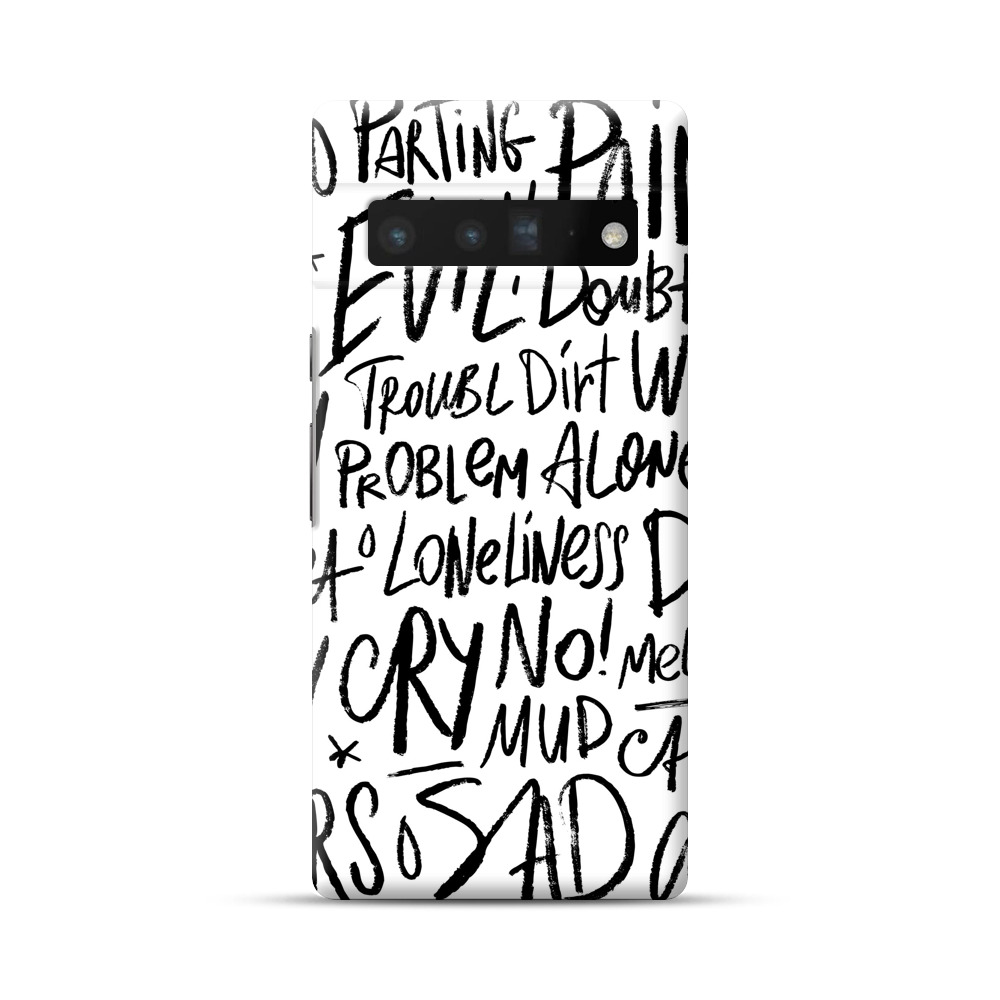 PARTING PAIN
EVIL. DOUBT
TROUBL Dirt W
PROBLEM ALONE
LONELINESS D
CRY NO! MEL
MUD CA
RS SAD